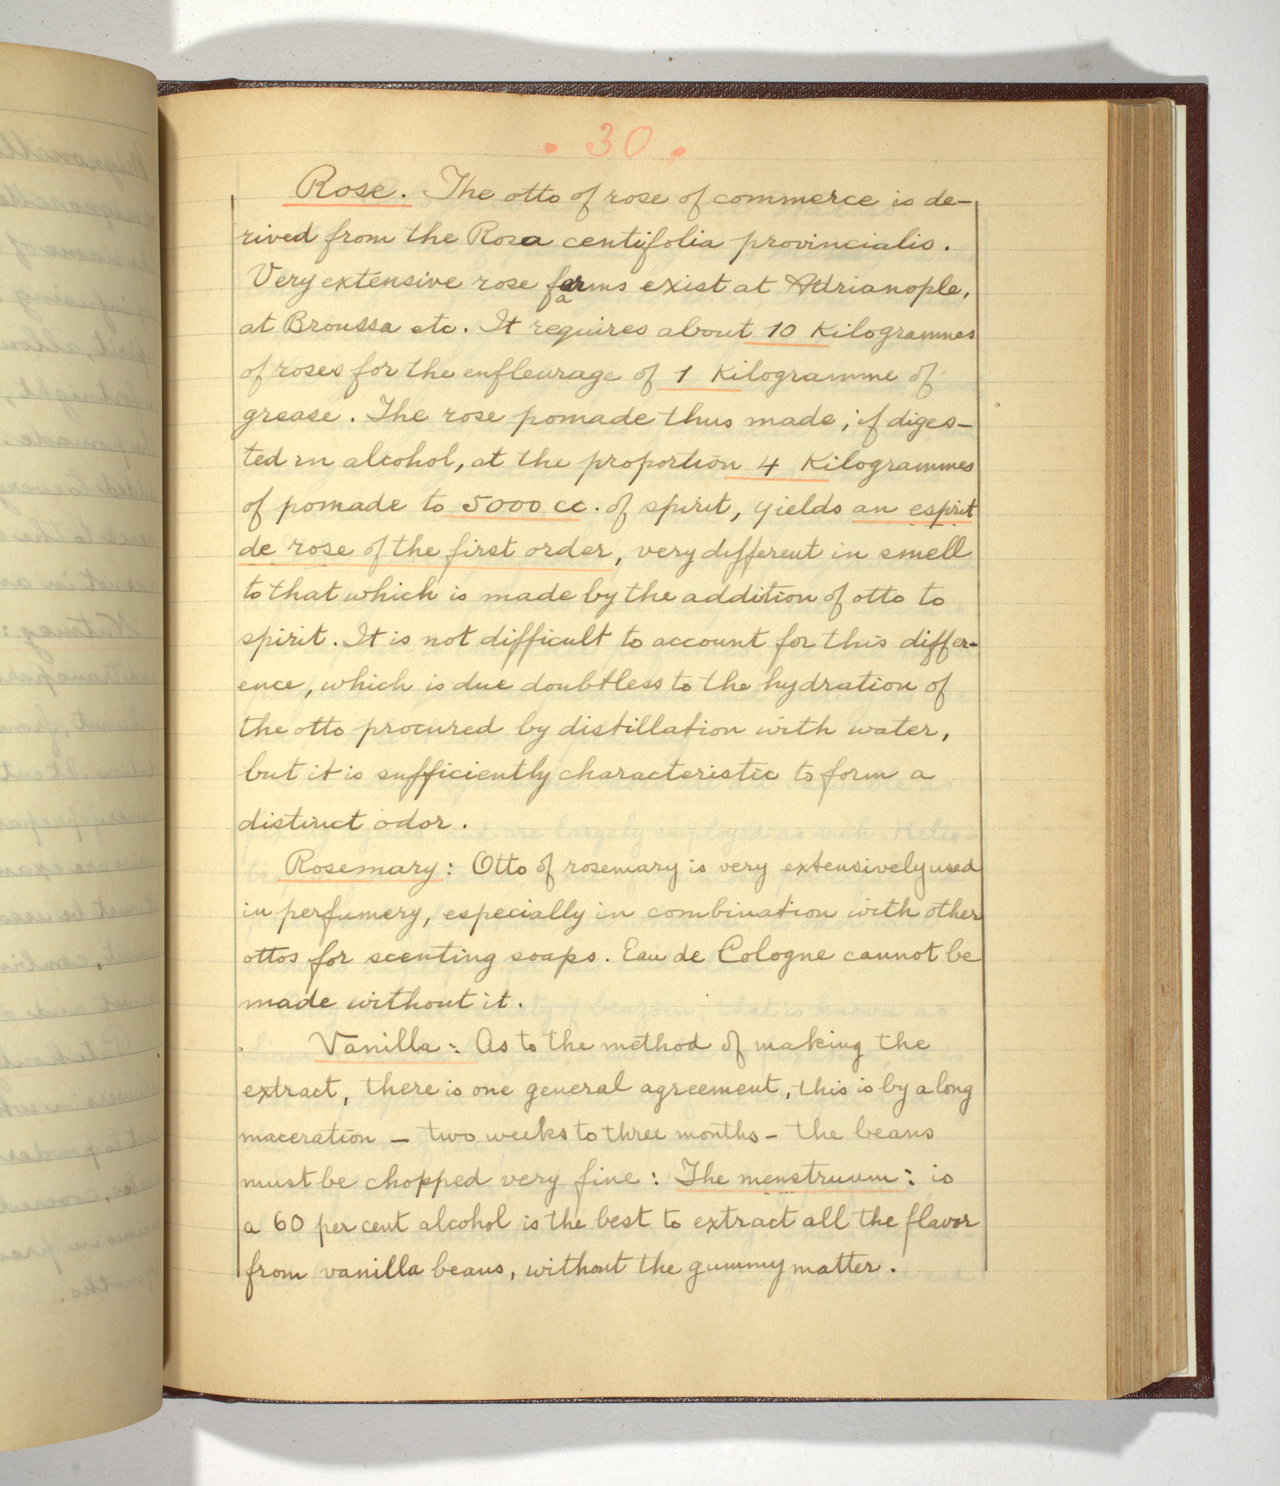 . 30 .
Rose. The otto of rose of commerce is de-
rived from the Rosa centifolia provincialis.
Very extensive rose farms exist at Adrianople,
at Broussa etc. It requires about 10 Kilogrammes
of roses for the enfleurage of 1 Kilogramme of
grease. The rose pomade thus made, if diges-
ted in alcohol, at the proportion 4 Kilogrammes
of pomade to 5000 cc. of spirit, yields an esprit
de rose of the first order, very different in smell
to that which is made by the addition of otto to
spirit. It is not difficult to account for this differ-
ence, which is due doubtless to the hydration of
the otto procured by distillation with water,
but it is sufficiently characteristic to form a
distinct odor.
Rosemary: Otto of rosemary is very extensively used
in perfumery, especially in combination with other
ottos for scenting soaps. Eau de Cologne cannot be
made without it.
Vanilla: As to the method of making the
extract, there is one general agreement, this is by a long
maceration — two weeks to three months - the beans
must be chopped very fine: The menstruum: is
a 60 per cent alcohol is the best to extract all the flavor
from vanilla beans, without the gummy matter.